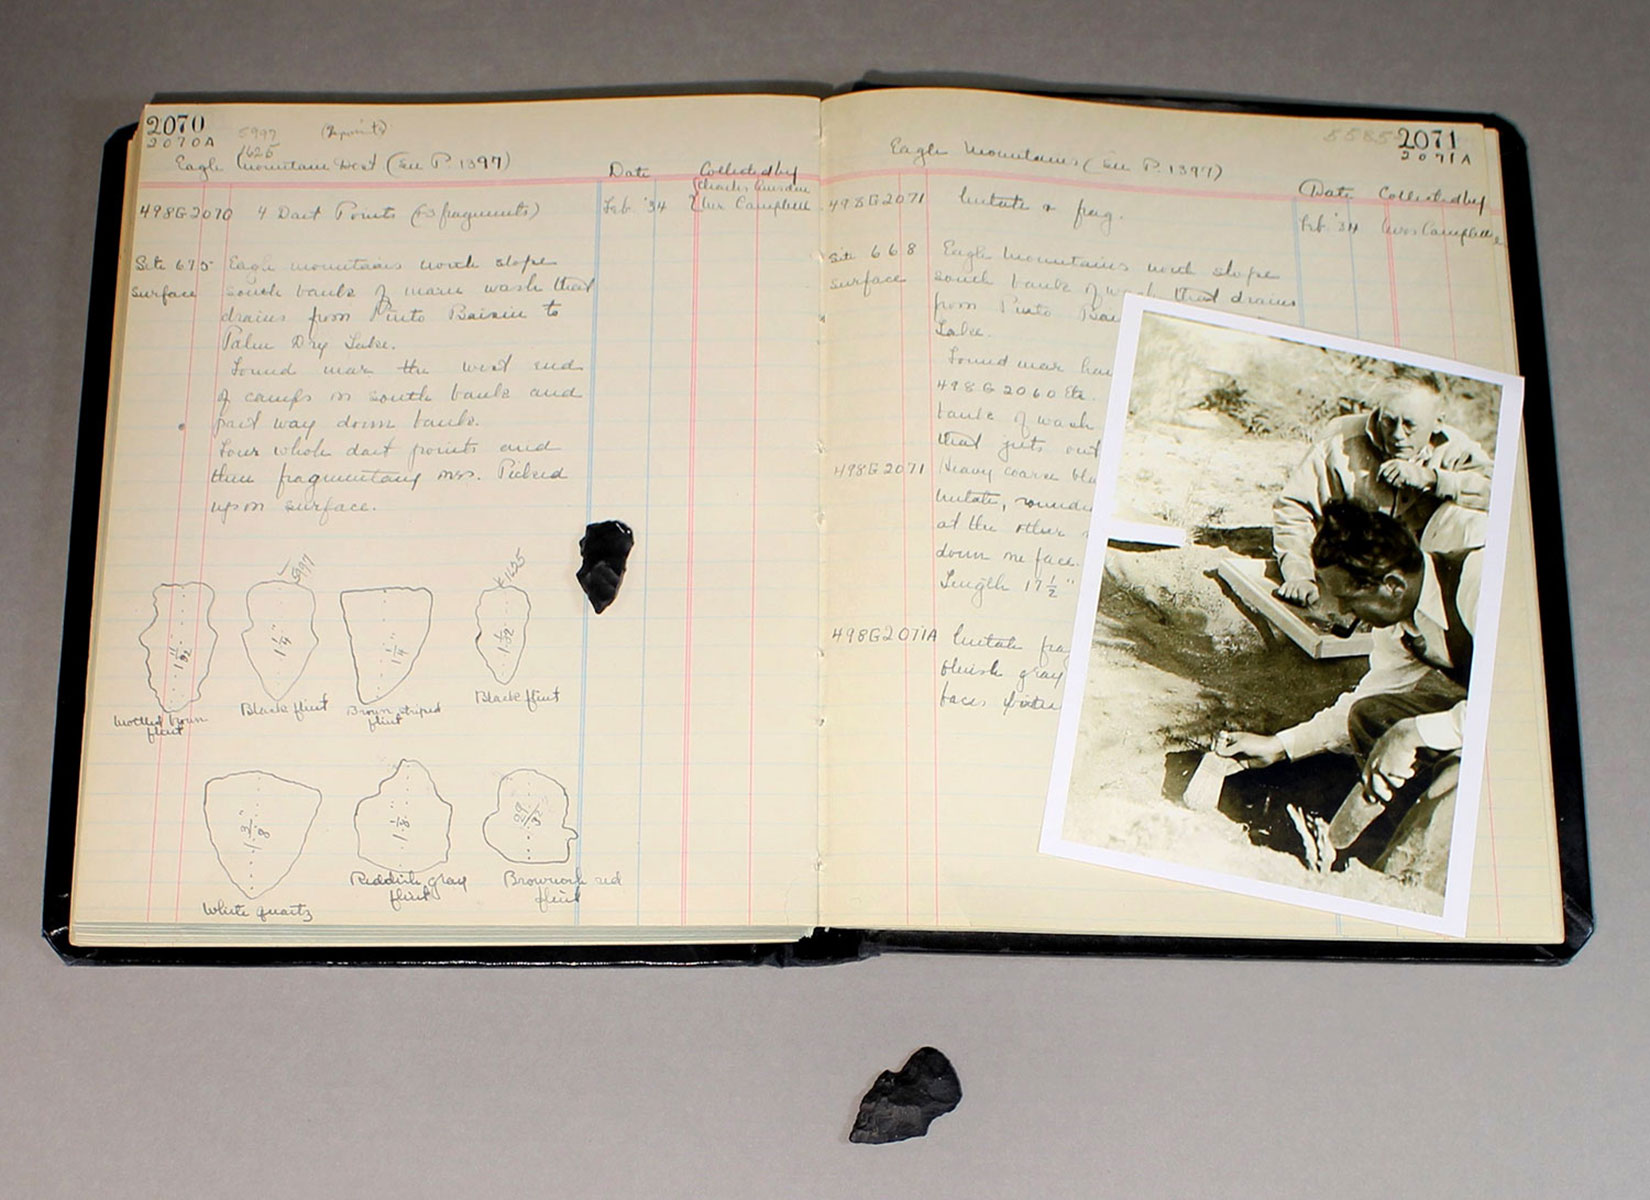 2070
2070A
5997
1625
(2 points)
Eagle Mountains West (See P. 1397)
Date
Collected by
498G2070 4 Dart Points (& 3 fragments)
Feb. '34
Charles
Campbell
Site 675 Eagle mountains north slope
surface south bank of main wash that
drains from Pinto Baisin to
Palen Dry Lake.
Found near the west end
of camps on south bank and
part way down bank.
Four whole dart points and
three fragmentary ones. Picked
up on surface.
5997
1625
1 11/32
1 1/4"
1 1/4"
1 1/32
Mottled brown
flint
Black flint
Brown striped
flint
Black flint
1 3/8"
1 1/8"
29/32
White quartz
Reddish gray
flint
Brownish red
flint
5585
2071
2071A
Eagle Mountains (See P. 1397)
Date
Collected by
498G2071 Metate & frag.
Feb. '34
Campbell
Site 668 Eagle Mountains north slope
surface south bank of wash that drains
from Pinto Bai
Lake.
Found near
498G2060 Etc.
bank of wash
that juts out
498G2071 Heavy coarse
Metate, rounde
at the other
down one face.
Length 17 1/2"
498G2071A Metate fra
bluish gray
faces